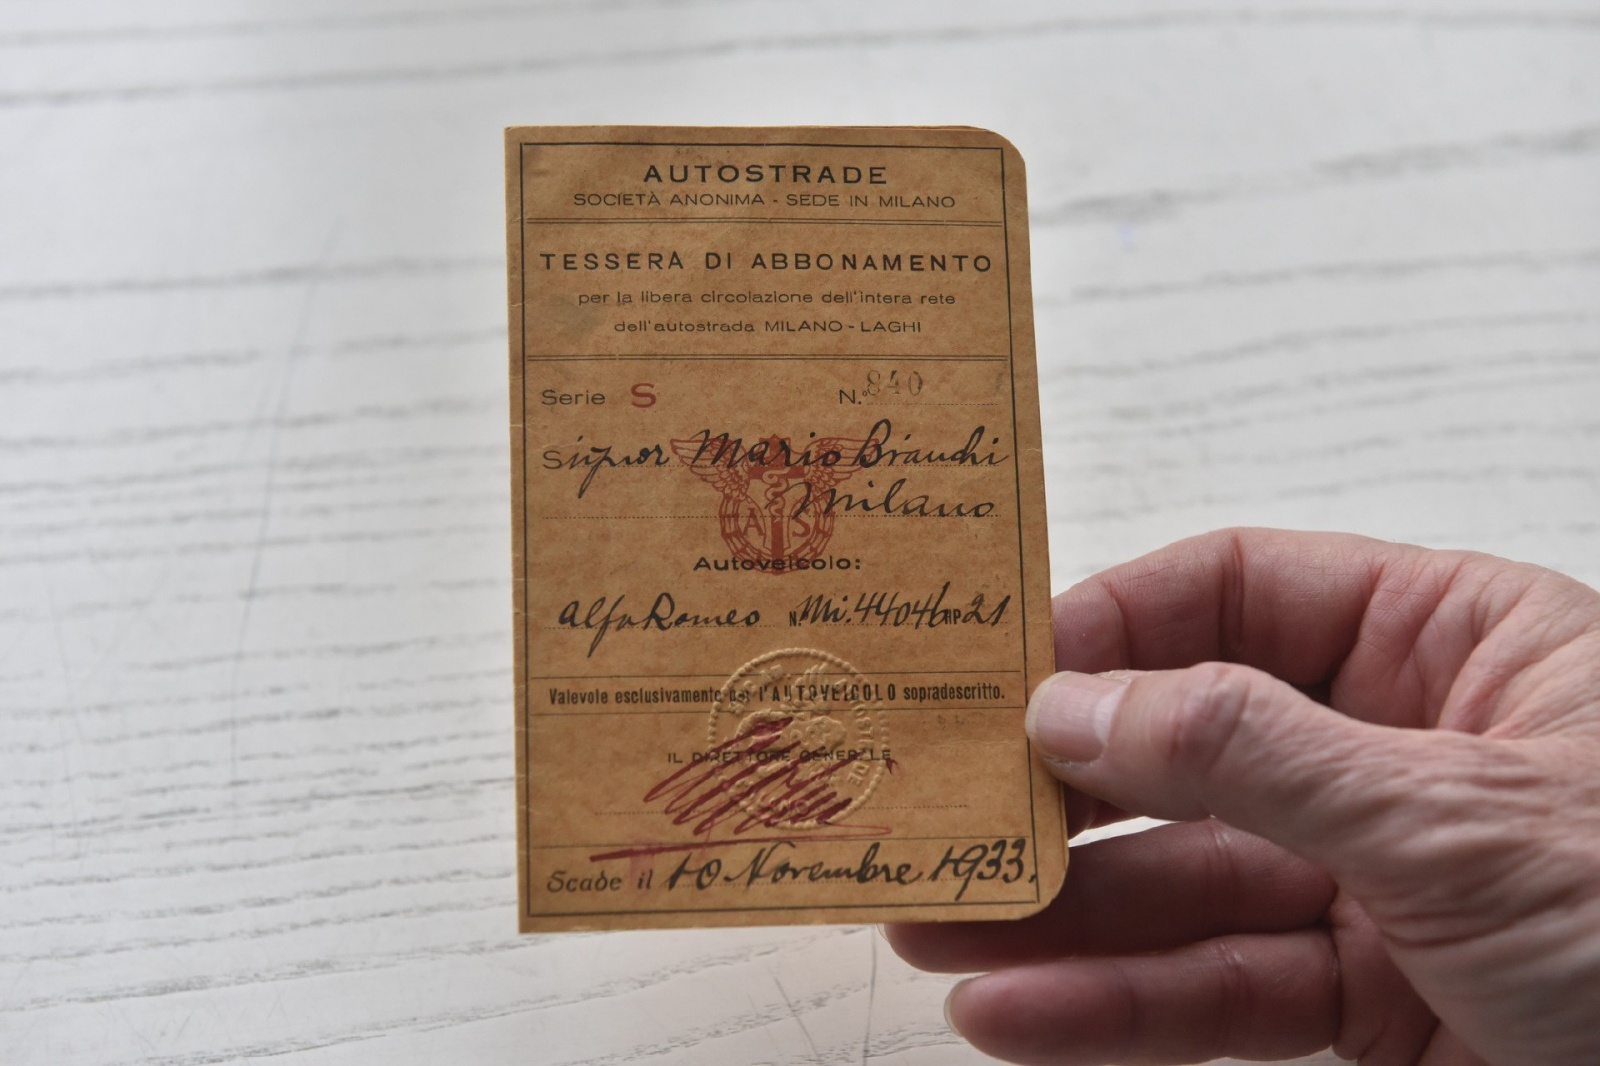 AUTOSTRADE
SOCIETÀ ANONIMA - SEDE IN MILANO
TESSERA DI ABBONAMENTO
per la libera circolazione dell'intera rete
dell'autostrada MILANO - LAGHI
Serie S N.° 840
Signor Mario Bianchi
Milano
A S
Autoveicolo:
Alfa Romeo N. Mi. 44046 HP 21
Valevole esclusivamente per l'AUTOVEICOLO sopradescritto.
IL DIRETTORE GENERALE
Scade il 10 Novembre 1933.